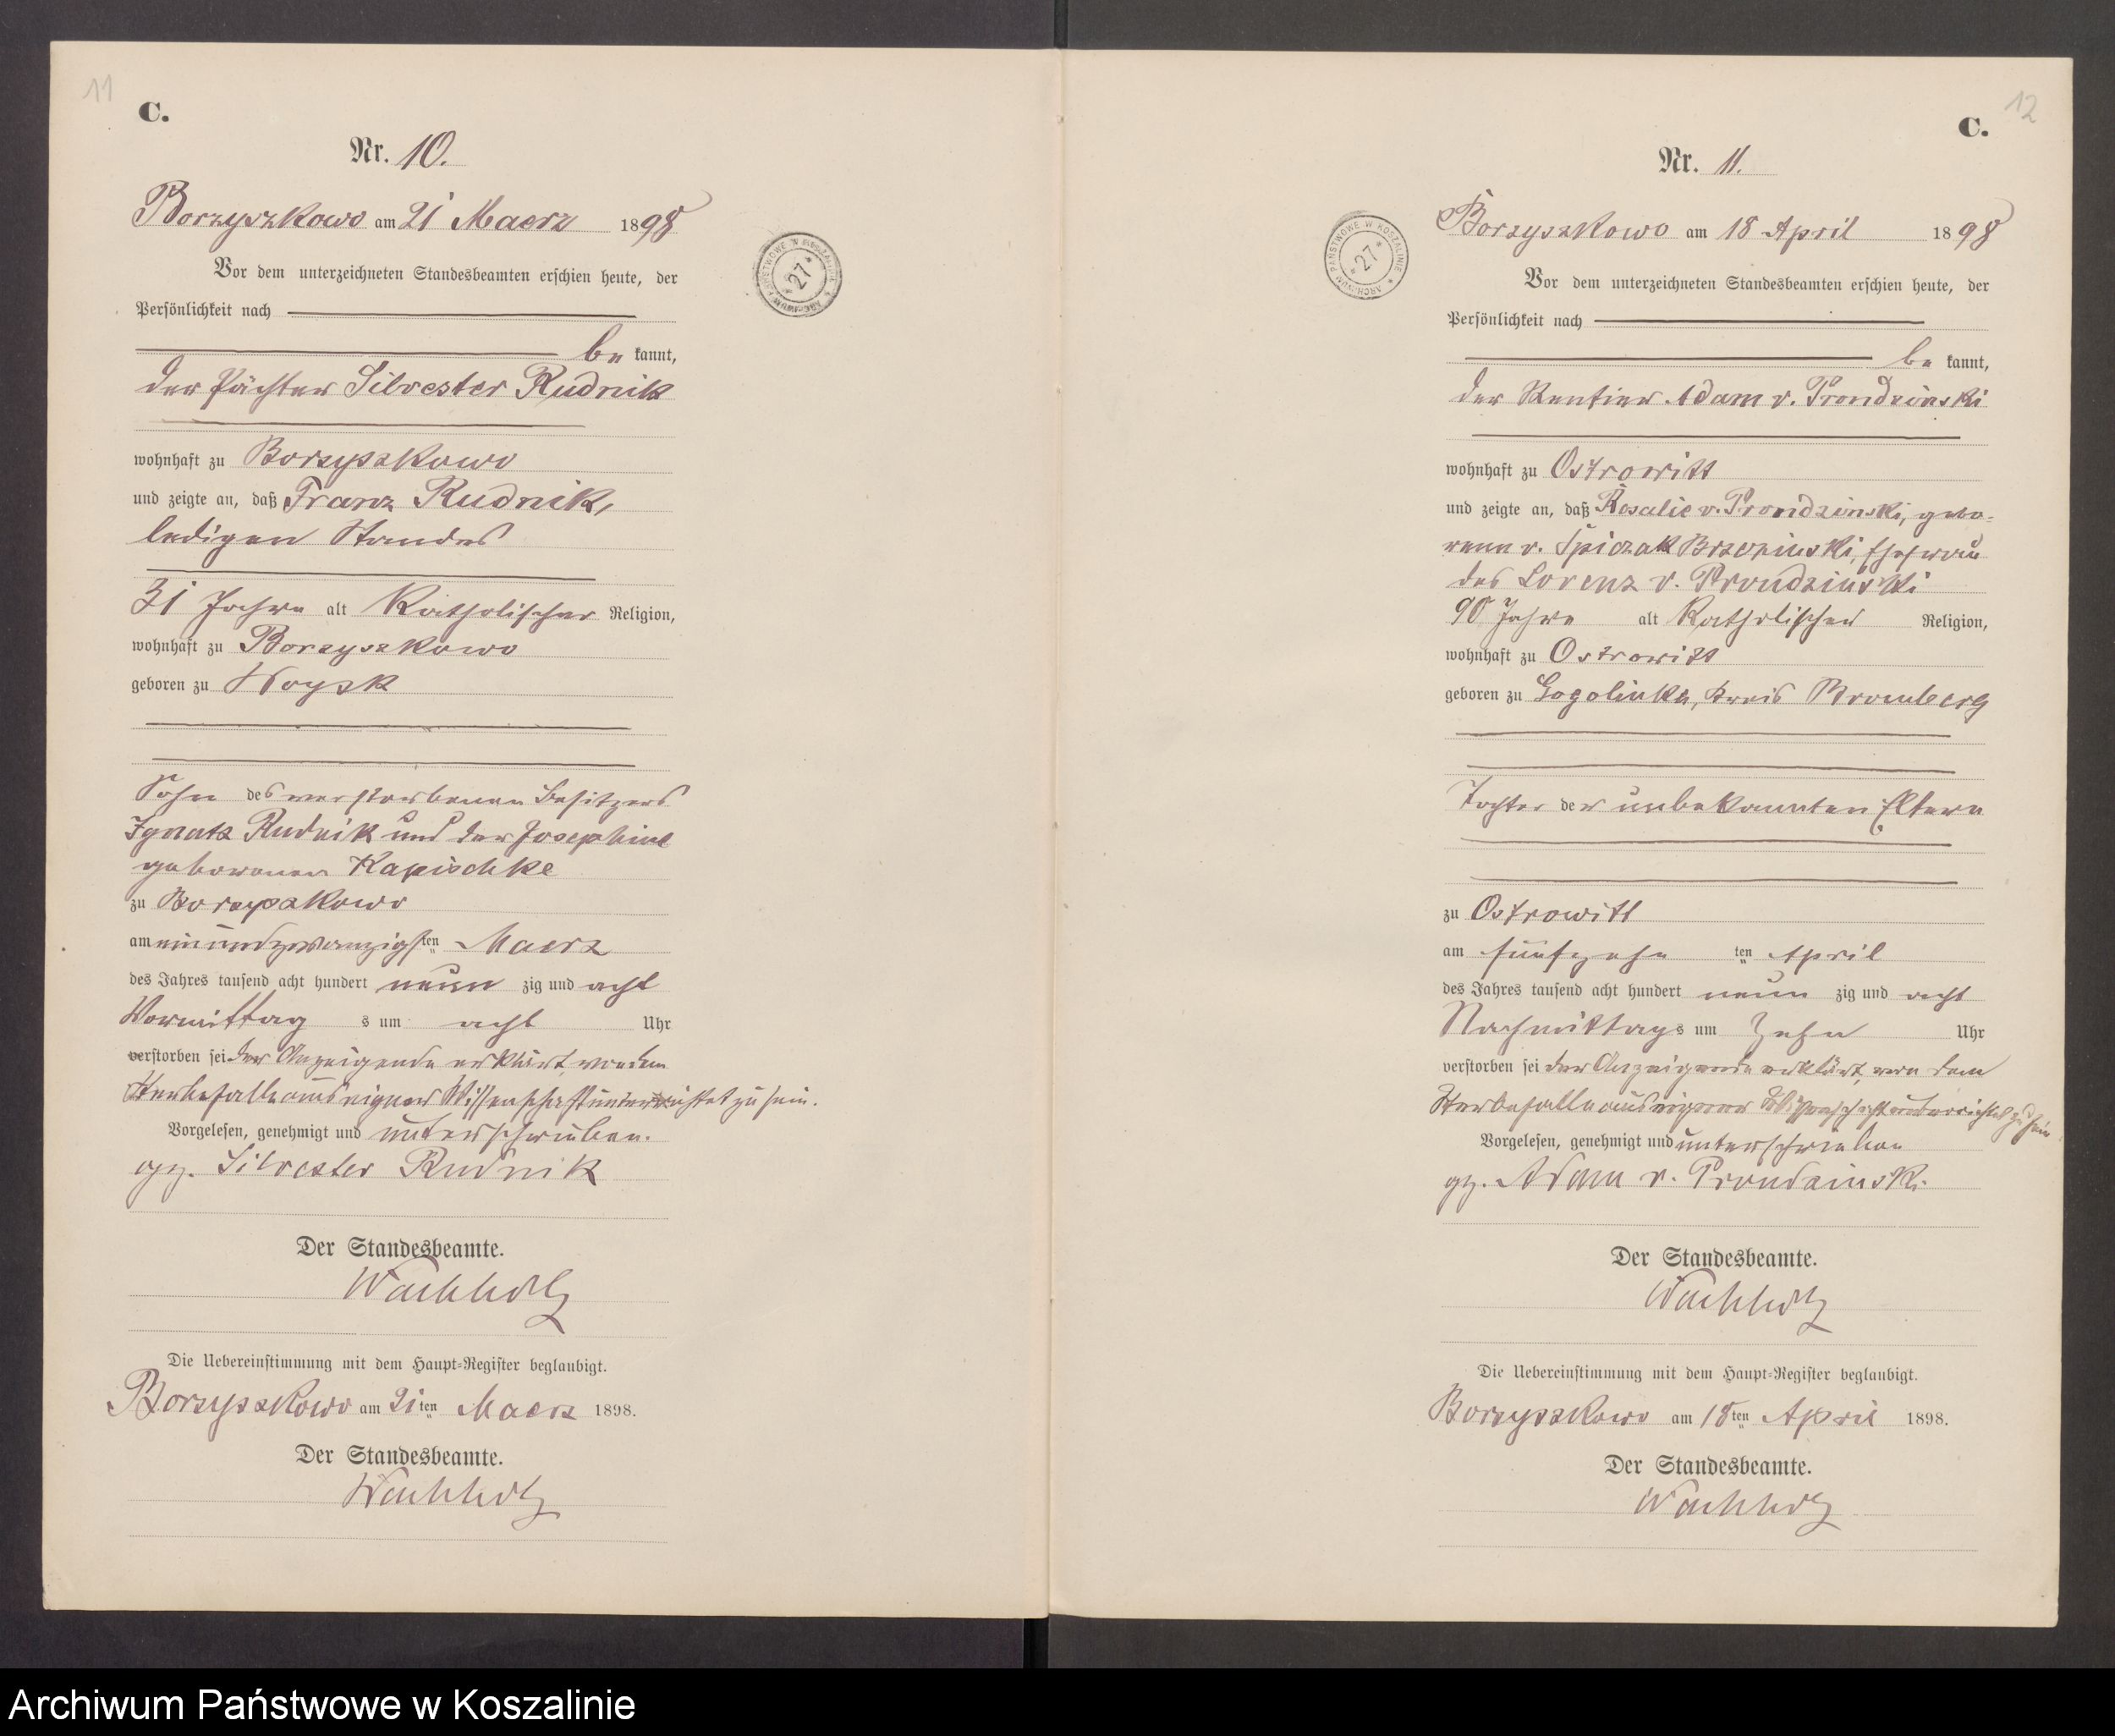 11
C.
Nr. 10.
Borzyszkowo am 21 Maerz 1898
Vor dem unterzeichneten Standesbeamten erschien heute, der
Persönlichkeit nach
be kannt,
der Pächter Silvester Rudnik
wohnhaft zu Borzyszkowo
und zeigte an, daß Franz Rudnik,
ledigen Standes
31 Jahre alt Katholischer Religion,
wohnhaft zu Borzyszkowo
geboren zu Woysk
Sohn des verstorbenen Besitzers
Ignatz Rudnik und der Josephine
geborenen Kapischke
zu Borzyszkowo
am einundzwanzigsten Maerz
des Jahres tausend acht hundert neun zig und acht
Vormittag s um acht Uhr
verstorben sei der Anzeigende erklärt, von dem
Sterbefalle aus eigner Wissenschaft unterrichtet zu sein.
Vorgelesen, genehmigt und unterschrieben.
gz. Silvester Rudnik
Der Standesbeamte.
Wachholz
Die Uebereinstimmung mit dem Haupt-Register beglaubigt.
Borzyszkowo am 21ten Maerz 1898.
Der Standesbeamte.
Wachholz
ARCHIWUM PAŃSTWOWE W KOSZALINIE * 27 *
12
C.
Nr. 11.
Borzyszkowo am 18 April 1898
Vor dem unterzeichneten Standesbeamten erschien heute, der
Persönlichkeit nach
be kannt,
der Rentier Adam v. Prondzinski
wohnhaft zu Ostrowitt
und zeigte an, daß Rosalie v. Prondzinski, gebo-
rene v. Spiczak Brzezinski, Ehefrau
des Lorenz v. Prondzinski
90 Jahre alt Katholischer Religion,
wohnhaft zu Ostrowitt
geboren zu Gogolinke, Kreis Bromberg
Tochter der unbekannten Eltern
zu Ostrowitt
am fünfzehn ten April
des Jahres tausend acht hundert neun zig und acht
Nachmittags um Zehn Uhr
verstorben sei der Anzeigende erklärt, von dem
Sterbefalle aus eigner Wissenschaft unterrichtet zu sein.
Vorgelesen, genehmigt und unterschrieben
gz. Adam v. Prondzinski
Der Standesbeamte.
Wachholz
Die Uebereinstimmung mit dem Haupt-Register beglaubigt.
Borzyszkowo am 18ten April 1898.
Der Standesbeamte.
Wachholz
ARCHIWUM PAŃSTWOWE W KOSZALINIE * 27 *
Archiwum Państwowe w Koszalinie